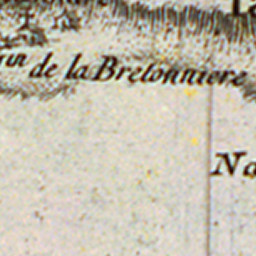 de la Bretonniere
Na